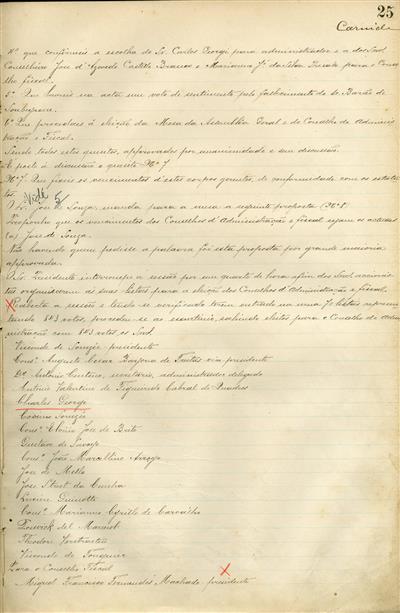 25
Carnide
4º que confirmeis a escolha do Sr. Carlos George para administrador e a dos Snrs
Conselheiro José d'Azevedo Castello Branco e Marianno J. da Silva Prezado para o Conse
lho fiscal.
5º Que lanceis na acta um voto de sentimento pelo fallecimento do Sr. Barão de
6º Que procedaes á eleição da Mesa da Assemblea Geral e do Conselho de Adminis
tração e Fiscal.
Sendo todos estes quesitos, approvados por unanimidade e sem discussão.
É posto á discussão o quesito Nº 7
Nº 7. Que fixeis os vencimentos d'estes corpos gerentes, de conformidade com os estatu
tos.
Vide 5
O Sr. José de Souza, manda para a mesa a seguinte proposta (Nº 8)
Proponho que os vencimentos dos Conselhos d'Administração e fiscal sejam os actuaes
(a) José de Souza.
Não havendo quem pedisse a palavra foi esta proposta por grande maioria
approvada.
O Sr. Presidente interrompe a sessão por um quarto de hora afim dos Snrs accionis
tas organisarem as suas listas para a eleição dos Conselhos d'Administração e fiscal.
X Reaberta a sessão e tendo-se verificado terem entrado na urna 7 listas represen
tando 843 votos, procedeu-se ao escrutinio, sahindo eleitos para o Conselho de Admi
nistração com 843 votos os Snrs
Visconde de presidente
Consº Augusto Cesar de Freitas vice presidente
Dr Antonio Centeno, secretario, administrador delegado
Antonio Valentino de Figueiredo Cabral de
Charles George
Consº Eloino José de Brito
Gustave de
Consº João Marcellino Arroyo
José de Mello
José Street da Cunha
Lucien Guinotte
Consº Marianno Cyrillo de Carvalho
del
Theodore
Visconde de
Para o Conselho Fiscal
X
Miguel Francisco Fernandes Machado presidente